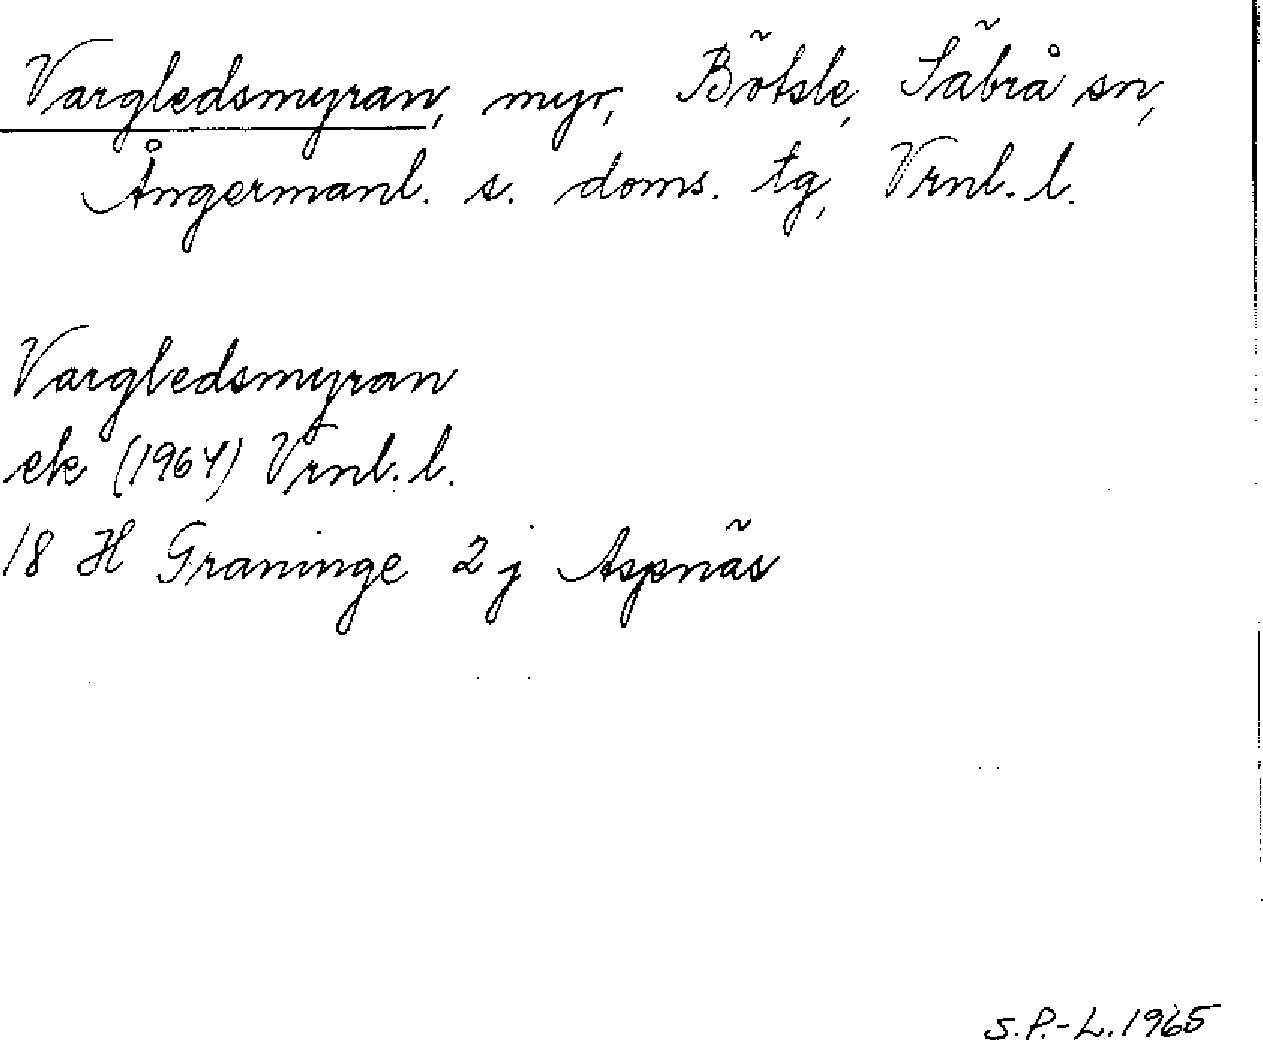 Vargledsmyran, myr, Bötsle, Säbrå sn,
Ångermanl. s. doms. tg, Vrnl. l.
Vargledsmyran
ek (1964) Vrnl. l.
18 H Graninge 2 j Aspnäs
S.P.-L. 1965